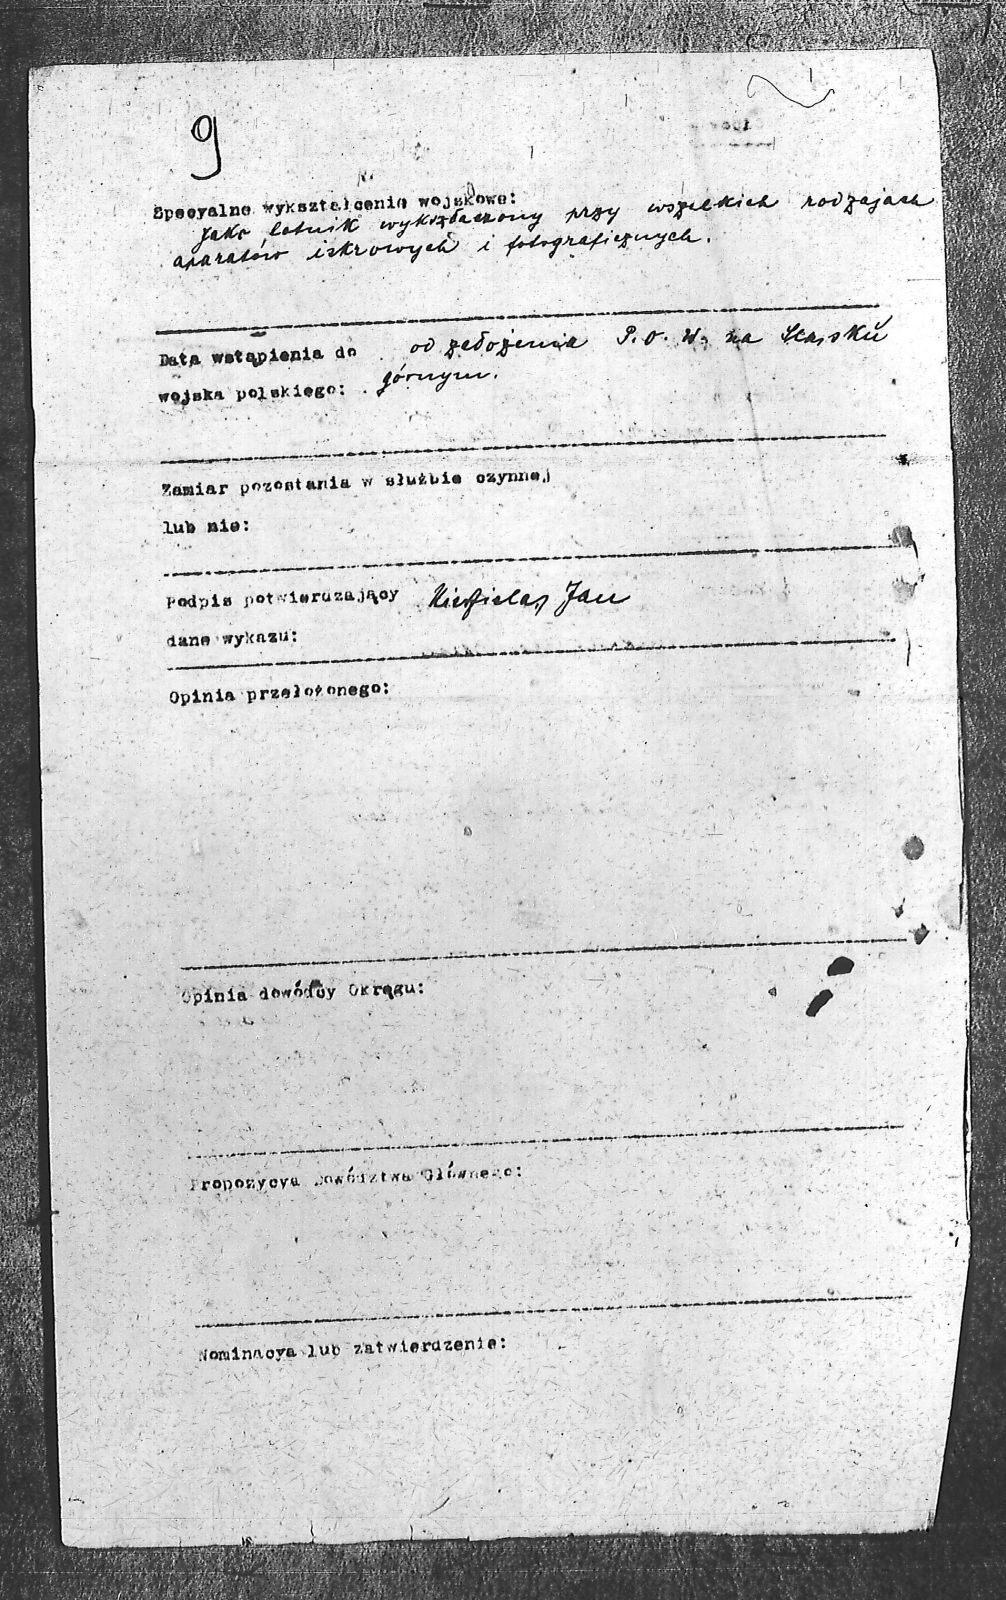 9
Specyalne wykształcenie wojskowe:
Jako lotnik wykształcony przy wszelkich rodzajach
aparatów iskrowych i fotograficznych.
Data wstąpienia do od założenia P. O. W. na Śląsku
wojska polskiego: górnym.
Zamiar pozostania w służbie czynnej
lub nie:
Podpis potwierdzający Jan
dane wykazu:
Opinia przełożonego:
Opinia dowódcy Okręgu:
Propozycya Dowództwa Głównego:
Nominacya lub zatwierdzenie: